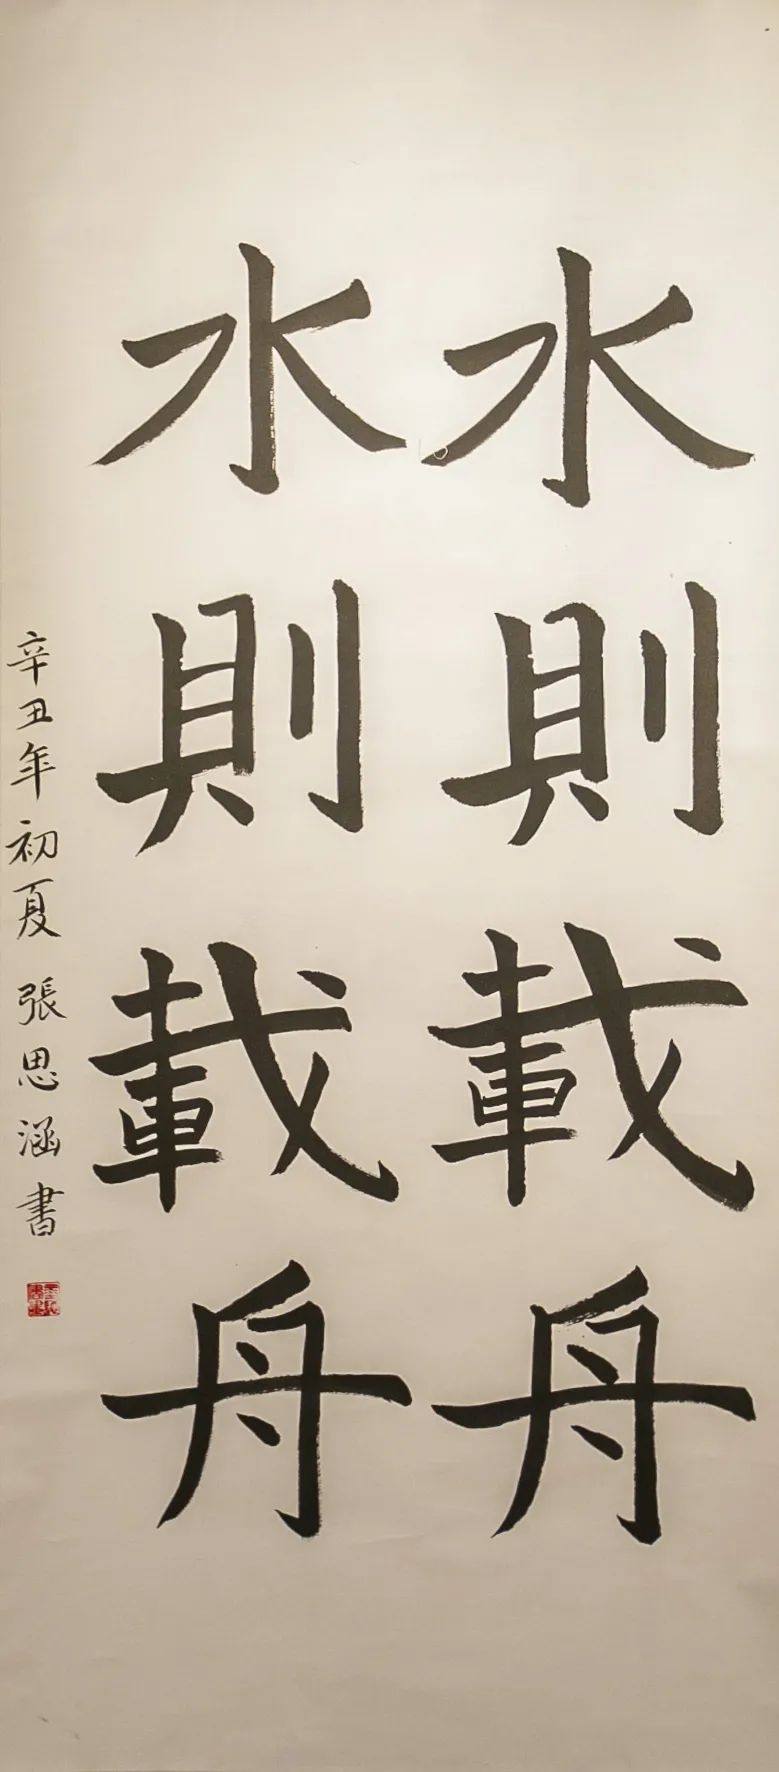 水則載舟
水則載舟
辛丑年初夏張思涵書